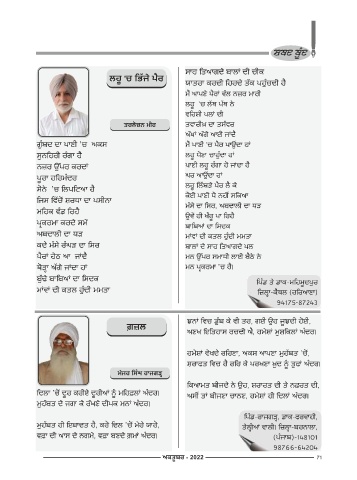 ਸ਼ਬਦ ਬੂੰਦ
ਲਹੂ 'ਚ ਭਿੱਜੇ ਪੈਰ
ਤਰਲੋਚਨ ਮੀਰ
ਗੁੰਬਦ ਦਾ ਪਾਣੀ 'ਚ ਅਕਸ
ਸੁਨਹਿਰੀ ਰੰਗਾ ਹੈ
ਨਜ਼ਰ ਉੱਪਰ ਕਰਦਾਂ
ਪੂਰਾ ਹਰਿਮੰਦਰ
ਸੋਨੇ 'ਚ ਲਿਪਟਿਆ ਹੈ
ਜਿਸ ਵਿੱਚੋਂ ਸ਼ਰਧਾ ਦਾ ਪਸੀਨਾ
ਮਹਿਕ ਵੰਡ ਰਿਹੈ
ਪ੍ਰਕਰਮਾ ਕਰਦੇ ਸਮੇਂ
ਅਬਦਾਲੀ ਦਾ ਧੜ
ਕਦੇ ਮੱਸੇ ਰੰਘੜ ਦਾ ਸਿਰ
ਪੈਰਾਂ ਹੇਠ ਆ ਜਾਂਦੈ
ਥੋੜ੍ਹਾ ਅੱਗੇ ਜਾਂਦਾ ਹਾਂ
ਬੁੱਢੇ ਬਾਬਿਆਂ ਦਾ ਸਿਦਕ
ਮਾਂਵਾਂ ਦੀ ਕਤਲ ਹੁੰਦੀ ਮਮਤਾ
ਸਾਹ ਤਿਆਗਦੇ ਬਾਲਾਂ ਦੀ ਚੀਕ
ਯਾਤਰਾ ਕਰਦੀ ਹਿਰਦੇ ਤੱਕ ਪਹੁੰਚਦੀ ਹੈ
ਮੈਂ ਆਪਣੇ ਪੈਰਾਂ ਵੱਲ ਨਜ਼ਰ ਮਾਰੀ
ਲਹੂ 'ਚ ਲੱਥ ਪੱਥ ਨੇ
ਵਹਿਸ਼ੀ ਪਲਾਂ ਦੀ
ਤਵਾਰੀਖ਼ ਦਾ ਤਸੱਵਰ
ਅੱਖਾਂ ਅੱਗੋਂ ਆਈ ਜਾਂਦੈ
ਮੈਂ ਪਾਣੀ 'ਚ ਪੈਰ ਪਾਉਂਦਾ ਹਾਂ
ਲਹੂ ਧੋਣਾ ਚਾਹੁੰਦਾ ਹਾਂ
ਪਾਣੀ ਲਹੂ ਰੰਗਾ ਹੋ ਜਾਂਦਾ ਹੈ
ਘਰ ਆਉਂਦਾ ਹਾਂ
ਲਹੂ ਲਿੱਬੜੇ ਪੈਰ ਲੈ ਕੇ
ਕੋਈ ਪਾਣੀ ਧੋ ਨਹੀਂ ਸਕਿਆ
ਮੱਸੇ ਦਾ ਸਿਰ, ਅਬਦਾਲੀ ਦਾ ਧੜ
ਉਵੇਂ ਹੀ ਖੌਰੂ ਪਾ ਰਿਹੈ
ਬਾਬਿਆਂ ਦਾ ਸਿਦਕ
ਮਾਂਵਾਂ ਦੀ ਕਤਲ ਹੁੰਦੀ ਮਮਤਾ
ਬਾਲਾਂ ਦੇ ਸਾਹ ਤਿਆਗਦੇ ਪਲ
ਮਨ ਉੱਪਰ ਸਮਾਧੀ ਲਾਈ ਬੈਠੇ ਨੇ
ਮਨ ਪ੍ਰਕਰਮਾ 'ਚ ਹੈ।
ਪਿੰਡ ਤੇ ਡਾਕ-ਮਹਿਮੂਦਪੁਰ
ਜ਼ਿਲ੍ਹਾ-ਕੈਥਲ (ਹਰਿਆਣਾ)
94175-87243
ਗ਼ਜ਼ਲ
ਮੇਜਰ ਸਿੰਘ ਰਾਜਗੜ੍ਹ
ਦਿਲਾ 'ਚੋਂ ਦੂਰ ਕਰੀਏ ਦੂਰੀਆਂ ਨੂੰ ਮਹਿਫ਼ਲਾਂ ਅੰਦਰ।
ਮੁਹੱਬਤ ਦੇ ਜਗਾ ਕੇ ਰੱਖਣੇ ਦੀਪਕ ਮਨਾਂ ਅੰਦਰ।
ਮੁਹੱਬਤ ਹੀ ਇਬਾਦਤ ਹੈ, ਕਰੇ ਦਿਲ 'ਚੋਂ ਮੇਰੇ ਯਾਰੋ,
ਵਫ਼ਾ ਦੀ ਆਸ ਦੇ ਨਗਮੇ, ਵਫ਼ਾ ਬਣਦੇ ਗ਼ਮਾਂ ਅੰਦਰ।
ਝਨਾਂ ਵਿਚ ਡੁੱਬ ਕੇ ਵੀ ਤਰ, ਗਈ ਉਹ ਜੂਝਦੀ ਹੋਈ,
ਅਣਖ ਇਤਿਹਾਸ ਰਚਦੀ ਐ, ਹਮੇਸ਼ਾਂ ਮੁਸ਼ਕਿਲਾਂ ਅੰਦਰ।
ਹਮੇਸ਼ਾਂ ਵੇਖਦੇ ਰਹਿਣਾ, ਅਕਸ ਆਪਣਾ ਮੁਹੱਬਤ 'ਚੋਂ,
ਸ਼ਰਾਫਤ ਵਿਚ ਹੈ ਰਹਿ ਕੇ ਪਰਖਣਾ ਖ਼ੁਦ ਨੂੰ ਤੁਫ਼ਾਂ ਅੰਦਰ।
ਕਿਆਮਤ ਬੀਜਦੇ ਨੇ ਉਹ, ਸ਼ਰਾਰਤ ਦੀ ਤੇ ਨਫ਼ਰਤ ਦੀ,
ਅਸੀਂ ਤਾਂ ਬੀਜਣਾ ਚਾਨਣ, ਹਮੇਸ਼ਾਂ ਹੀ ਦਿਲਾਂ ਅੰਦਰ।
ਪਿੰਡ-ਰਾਜਗੜ੍ਹ, ਡਾਕ-ਫਰਵਾਹੀ,
ਜ਼ਿਲ੍ਹਾ-ਬਰਨਾਲਾ,
(ਪੰਜਾਬ)-148101
98766-64204
ਅਕਤੂਬਰ - 2022
71